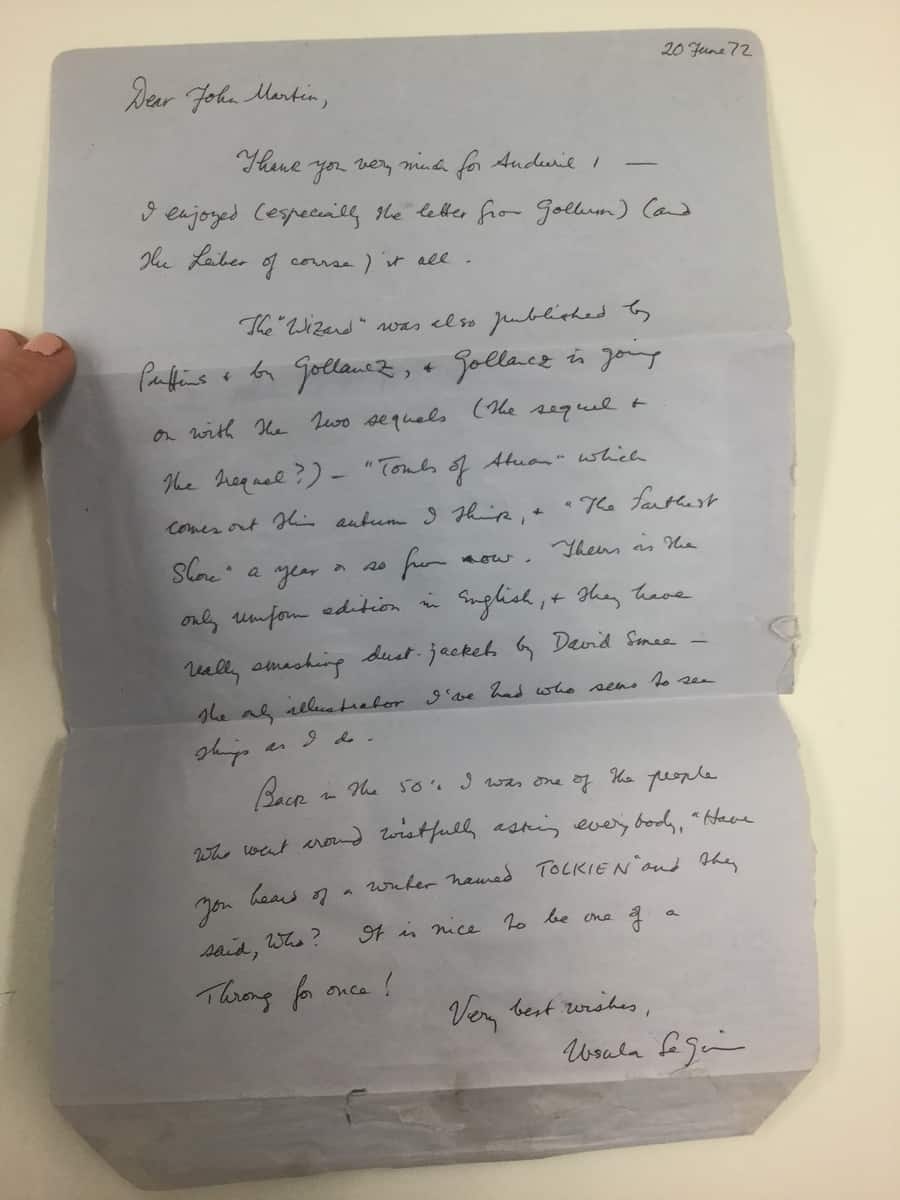 20 June 72
Dear John Martin,
Thank you very much for Anduril 1 —
I enjoyed (especially the letter from Gollum) (and
the Leiber of course) it all.
The "Wizard" was also published by
Puffins & by Gollancz, & Gollancz is going
on with the two sequels (the sequel &
the trequel?) – "Tombs of Atuan" which
comes out this autumn I think, & "The Farthest
Shore" a year or so from now. Theirs is the
only uniform edition in English, & they have
really smashing dust-jackets by David Smee –
the only illustrator I've had who seems to see
things as I do.
Back in the 50's I was one of the people
who went around wistfully asking everybody, "Have
you heard of a writer named TOLKIEN" and they
said, Who? It is nice to be one of a
Throng for once!
Very best wishes,
Ursula Le Guin